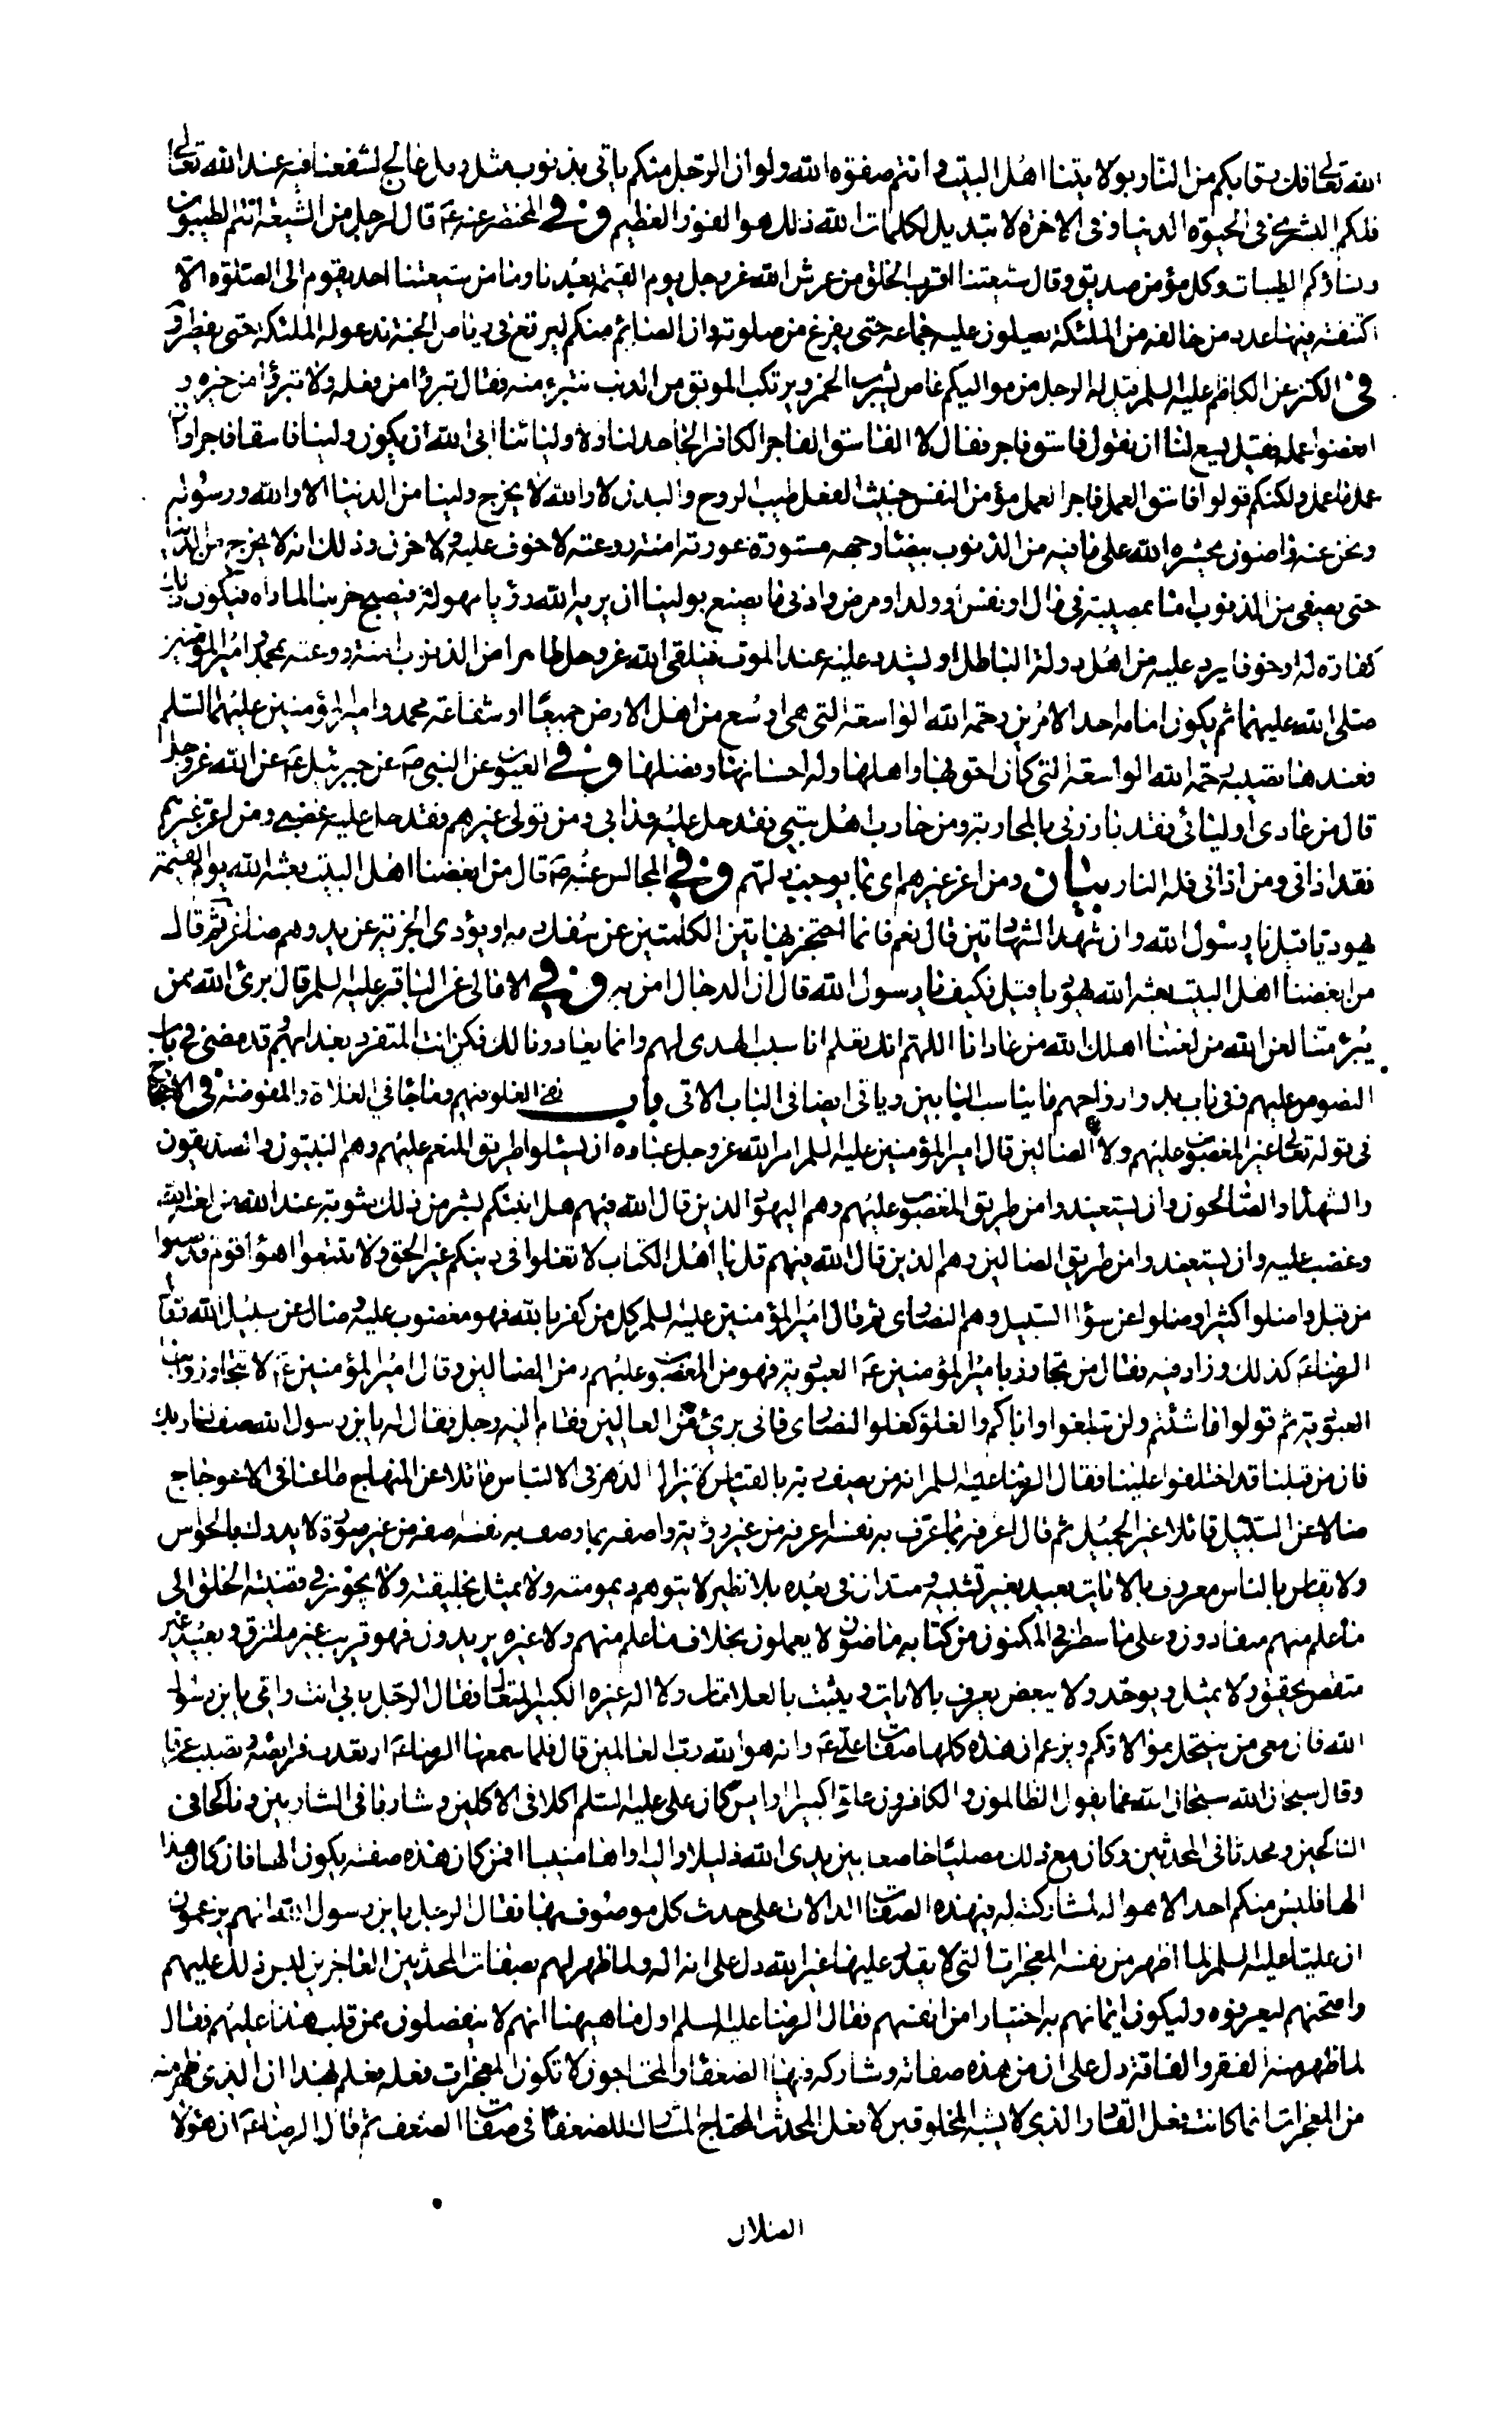 الله تعالى فان رقابكم من النار بولايتنا اهل البيت وانتم صفوة الله ولو ان الرجل منكم ياتي بذنوب مثل رمل عالج لشفعنا فيه عند الله تعالى
فلكم البشرى في الحيوة الدنيا وفي الاخرة لا تبديل لكلمات الله ذلك هو الفوز العظيم وفي المحتضر عنه ع قال لرجل من الشيعة انتم الطيبون
ونساؤكم الطيبات وكل مؤمن صديق وقال شيعتنا اقرب الخلق من عرش الله عز وجل يوم القيمة بعدنا وما من شيعتنا احد يقوم الى الصلوة الا
اكتنفته فيها عدد من خالفه من الملئكة يصلون عليه جماعة حتى يفرغ من صلوته وان الصائم منكم ليرتع في رياض الجنة تدعو له الملئكة حتى يفطر و
في الكنز عن الكاظم عليه السلم قيل له الرجل من مواليكم عاص يشرب الخمر ويرتكب الموبق من الذنب نتبرء منه فقال تبرؤا من فعله ولا تبرؤا من خيره و
ابغضوا عمله فقيل يسع لنا ان نقول فاسق فاجر فقال لا الفاسق الفاجر الكافر الجاحد لنا ولاوليائنا ابى الله ان يكون ولينا فاسقا فاجرا وان
عمل ما عمل ولكنكم قولوا فاسق العمل فاجر العمل مؤمن النفس خبيث الفعل طيب الروح والبدن لا والله لا يخرج ولينا من الدنيا الا والله ورسوله
ونحن عنه راضون يحشره الله على ما فيه من الذنوب مبيضا وجهه مستورة عورته امنة روعته لا خوف عليه ولا حزن وذلك انه لا يخرج من الدنيا
حتى يصفى من الذنوب اما بمصيبة في مال او نفس او ولد او مرض وادنى ما يصنع بولينا ان يريه الله رؤيا مهولة فيصبح حزينا لما راه فيكون ذلك
كفارة له او خوفا يرد عليه من اهل دولة الباطل او يشدد عليه عند الموت فيلقى الله عز وجل طاهرا من الذنوب امنة روعته بمحمد وامير المؤمنين
صلى الله عليهما ثم يكون امامه احد الامرين رحمة الله الواسعة التي هي اوسع من اهل الارض جميعا او شفاعة محمد وامير المؤمنين عليهما السلم
فعندها تصيبه رحمة الله الواسعة التي كان احق بها واهلها وله احسانها وفضلها وفي العيون عن النبي ص عن جبرئيل ع عن الله عز وجل
قال من عادى اوليائي فقد بارزني بالمحاربة ومن حارب اهل بيتي فقد حل عليه عذابي ومن تولى غيرهم فقد حل عليه غضبي ومن اعز غيرهم
فقد اذاني ومن اذاني فله النار بيان ومن اعز غيرهم اي بما يوجب ذلتهم وفي المجالس عنه ص قال من ابغضنا اهل البيت بعثه الله يوم القيمة
يهوديا قيل يا رسول الله وان شهد الشهادتين قال نعم فانما احتجز بهاتين الكلمتين عن سفك دمه او يؤدي الجزية عن يد وهم صاغر ثم قال
من ابغضنا اهل البيت بعثه الله يهوديا قيل فكيف يا رسول الله قال ان الدجال امن به وفي الامالي عن الباقر عليه السلم قال برئ الله ممن
يبرء منا لعن الله من لعننا اهلك الله من عادانا اللهم انك تعلم انا سبب الهدى لهم وانما يعادونا لك فكن انت المتفرد بعذابهم قد مضى في باب
النصوص عليهم وفي باب بدو ارواحهم ما يناسب البابين وياتي ايضا في الباب الاتي باب نفي الغلو فيهم وما جاء في الغلاة والمفوضة في الاحتجاج
في قوله تعالى غير المغضوب عليهم ولا الضالين قال امير المؤمنين عليه السلم امر الله عز وجل عباده ان يسئلوا طريق المنعم عليهم وهم النبيون والصديقون
والشهداء والصالحون وان يستعيذوا من طريق المغضوب عليهم وهم اليهود الذين قال الله فيهم هل انبئكم بشر من ذلك مثوبة عند الله من لعنه الله
وغضب عليه وان يستعيذوا من طريق الضالين وهم الذين قال الله فيهم قل يا اهل الكتاب لا تغلوا في دينكم غير الحق ولا تتبعوا اهواء قوم قد ضلوا
من قبل واضلوا كثيرا وضلوا عن سواء السبيل وهم النصارى ثم قال امير المؤمنين عليه السلم كل من كفر بالله فهو مغضوب عليه وضال عن سبيل الله وقال
الرضا ع كذلك وزاد فيه فقال من تجاوز بامير المؤمنين ع العبودية فهو من المغضوب عليهم ومن الضالين وقال امير المؤمنين ع لا تتجاوزوا بنا
العبودية ثم قولوا ما شئتم ولن تبلغوا واياكم والغلو كغلو النصارى فاني برئ من الغالين فقام اليه رجل فقال له يا بن رسول الله صف لنا ربك
فان من قبلنا قد اختلفوا علينا فقال الرضا عليه السلم انه من يصف ربه بالقياس لا يزال الدهر في الالتباس مائلا عن المنهاج طاعنا في الاعوجاج
ضالا عن السبيل قائلا غير الجميل ثم قال اعرفه بما عرف به نفسه اعرفه من غير رؤية واصفه بما وصف به نفسه صفه من غير صورة لا يدرك بالحواس
ولا يقاس بالناس معروف بالايات بعيد بغير تشبيه ومتدان في بعده بلا نظير لا يتوهم ديمومته ولا يمثل بخليقته ولا يجوز في قضيته الخلق الى
ما علم منهم منقادون وعلى ما سطر في المكنون من كتابه ماضون لا يعملون بخلاف ما علم منهم ولا غيره يريدون فهو قريب غير ملتزق وبعيد غير
متقص يحقق ولا يمثل ويوحد ولا يبعض يعرف بالايات ويثبت بالعلامات ولا اله غيره الكبير المتعال فقال الرجل بابي انت وامي يا بن رسول
الله فان معي من ينتحل موالاتكم ويزعم ان هذه كلها صفات علي ع وانه هو الله رب العالمين قال فلما سمعها الرضا ع ارتعدت فرائصه وتصبب عرقا
وقال سبحان الله سبحان الله عما يقول الظالمون والكافرون علوا كبيرا اوليس كان علي عليه السلم اكلا في الاكلين وشاربا في الشاربين وناكحا في
الناكحين ومحدثا في المحدثين وكان مع ذلك مصليا خاضعا بين يدي الله ذليلا واليه اواها منيبا افمن كان هذه صفته يكون الها فان كان هذا
الها فليس منكم احد الا هو اله لمشاركته له في هذه الصفات الدالات على حدث كل موصوف بها فقال الرجل يا بن رسول الله انهم يزعمون
ان عليا عليه السلم لما اظهر من نفسه المعجزات التي لا يقدر عليها غير الله دل على انه اله ولما ظهر لهم بصفات المحدثين العاجزين لبس ذلك عليهم
وامتحنهم ليعرفوه وليكون ايمانهم به اختيارا من انفسهم فقال الرضا عليه السلم اول ما هيهنا انهم لا ينفصلون ممن قلب هذا عليهم فقال
لما ظهر منه الفقر والفاقة دل على ان من هذه صفاته وشاركه فيها الضعفاء المحتاجون لا تكون المعجزات فعله فعلم بهذا ان الذي ظهر منه
من المعجزات انما كانت فعل القادر الذي لا يشبه المخلوقين لا فعل المحدث المحتاج المشارك للضعفاء في صفات الضعف ثم قال الرضا ع ان هؤلاء
الضلال